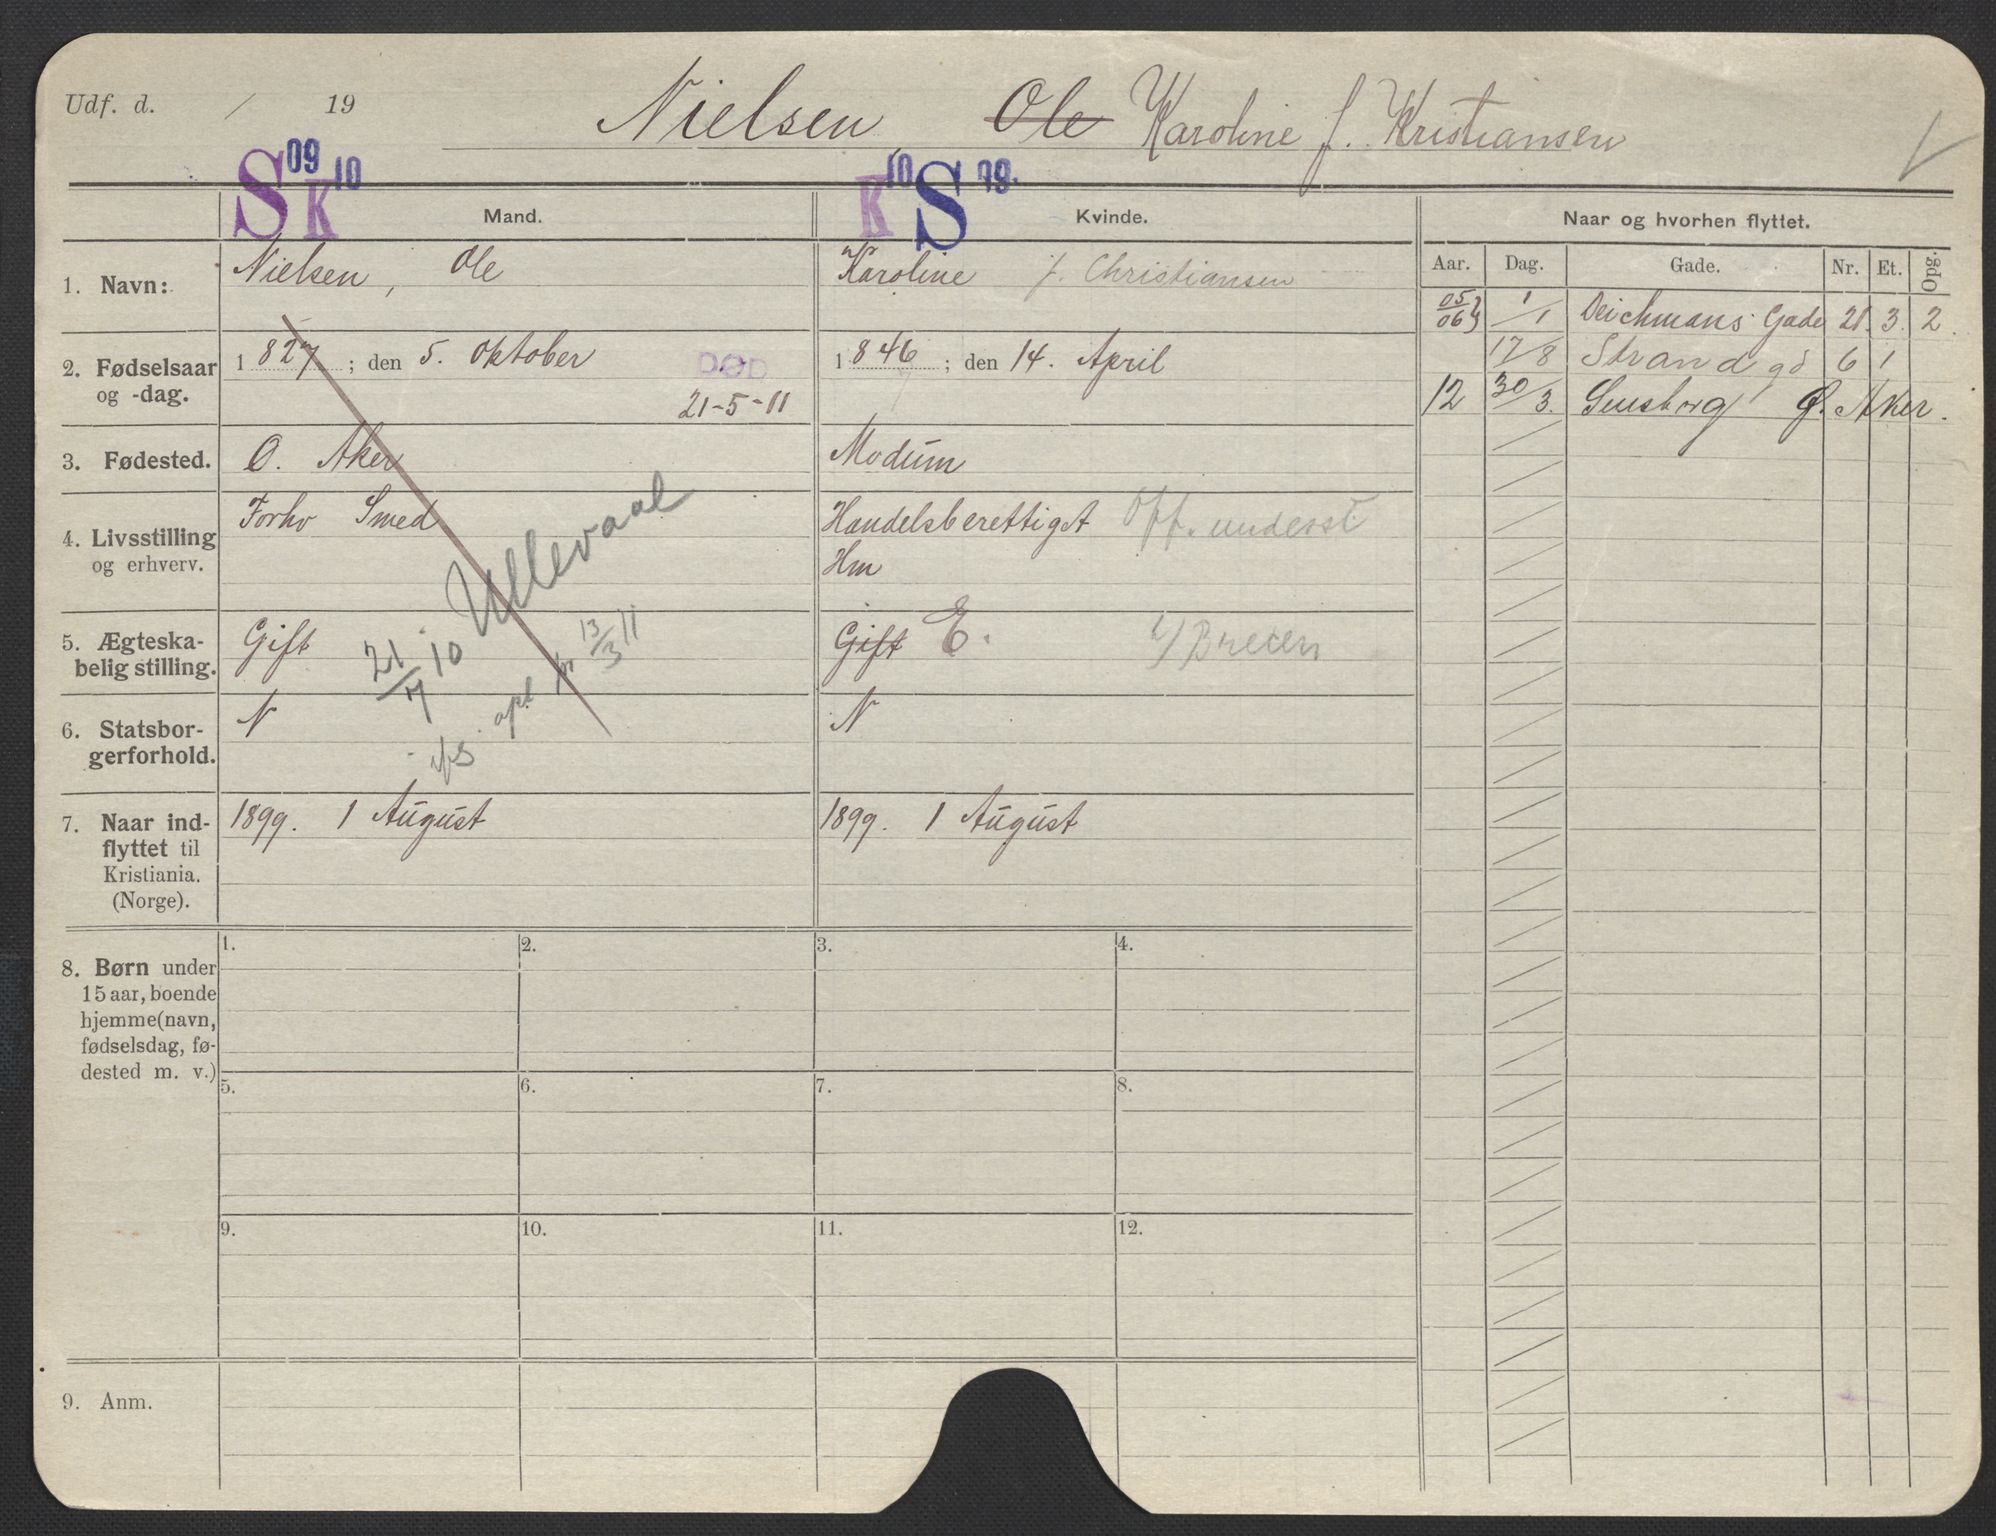 Udf. d. / 19
Nielsen Ole Karoline f. Kristiansen
S 09 K 10
K 10 S 09.
Mand.
Kvinde.
Naar og hvorhen flyttet.
Aar. Dag. Gade. Nr. Et. Opg.
1. Navn:
Nielsen, Ole
Karoline f. Christiansen
05/06 1/1 Deichmans Gade 21. 3. 2.
17/8 Strand gd 6 1
12 30/3. Ø. Aker.
2. Fødselsaar
og -dag.
1827; den 5. Oktober
DØD
21-5-11
1846; den 14. April
3. Fødested.
Ø. Aker
Modum
4. Livsstilling
og erhverv.
Forhv Smed
Handelsberettiget Off. underst
Hm
Ullevaal
21/7 10
13/3 11
5. Ægteska-
belig stilling.
Gift
Gift E.
6. Statsbor-
gerforhold.
N
N
7. Naar ind-
flyttet til
Kristiania.
(Norge).
1899. 1 August
1899. 1 August
8. Børn under
15 aar, boende
hjemme (navn,
fødselsdag, fø-
dested m. v.)
1. 2. 3. 4.
5. 6. 7. 8.
9. 10. 11. 12.
9. Anm.